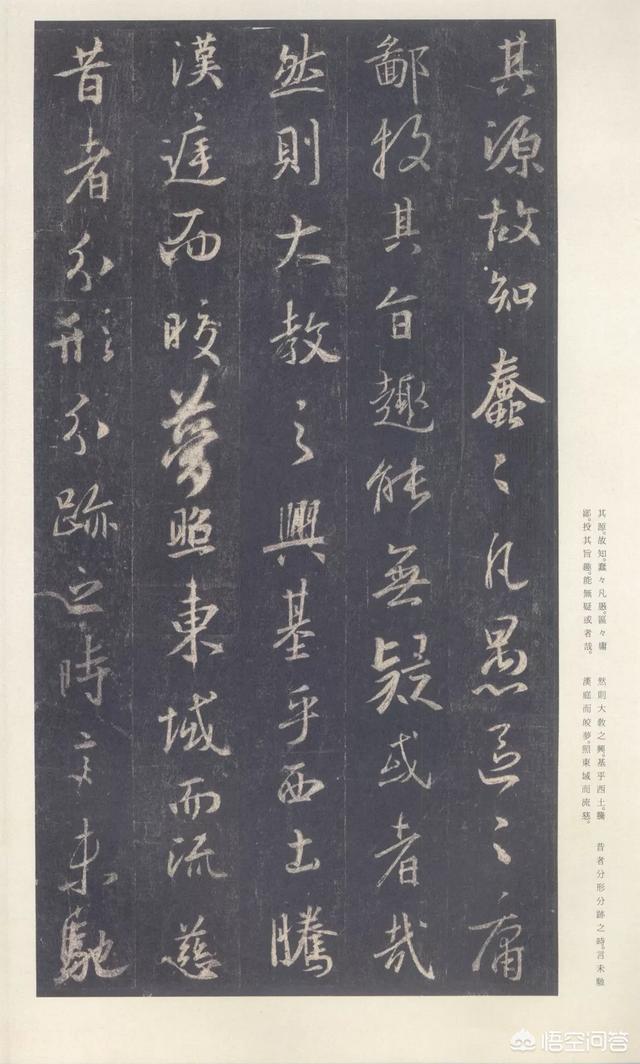 其源故知蠢々凡愚區々庸
鄙投其旨趣能無疑或者哉
然則大教之興基乎西土騰
漢庭而皎夢照東域而流慈
昔者分形分跡之時言未馳
其源。故知。蠢々凡愚。區々庸
鄙。投其旨趣。能無疑或者哉。
然則大教之興。基乎西土。騰
漢庭而皎夢。照東域而流慈。
昔者分形分跡之時。言未馳
悟空问答